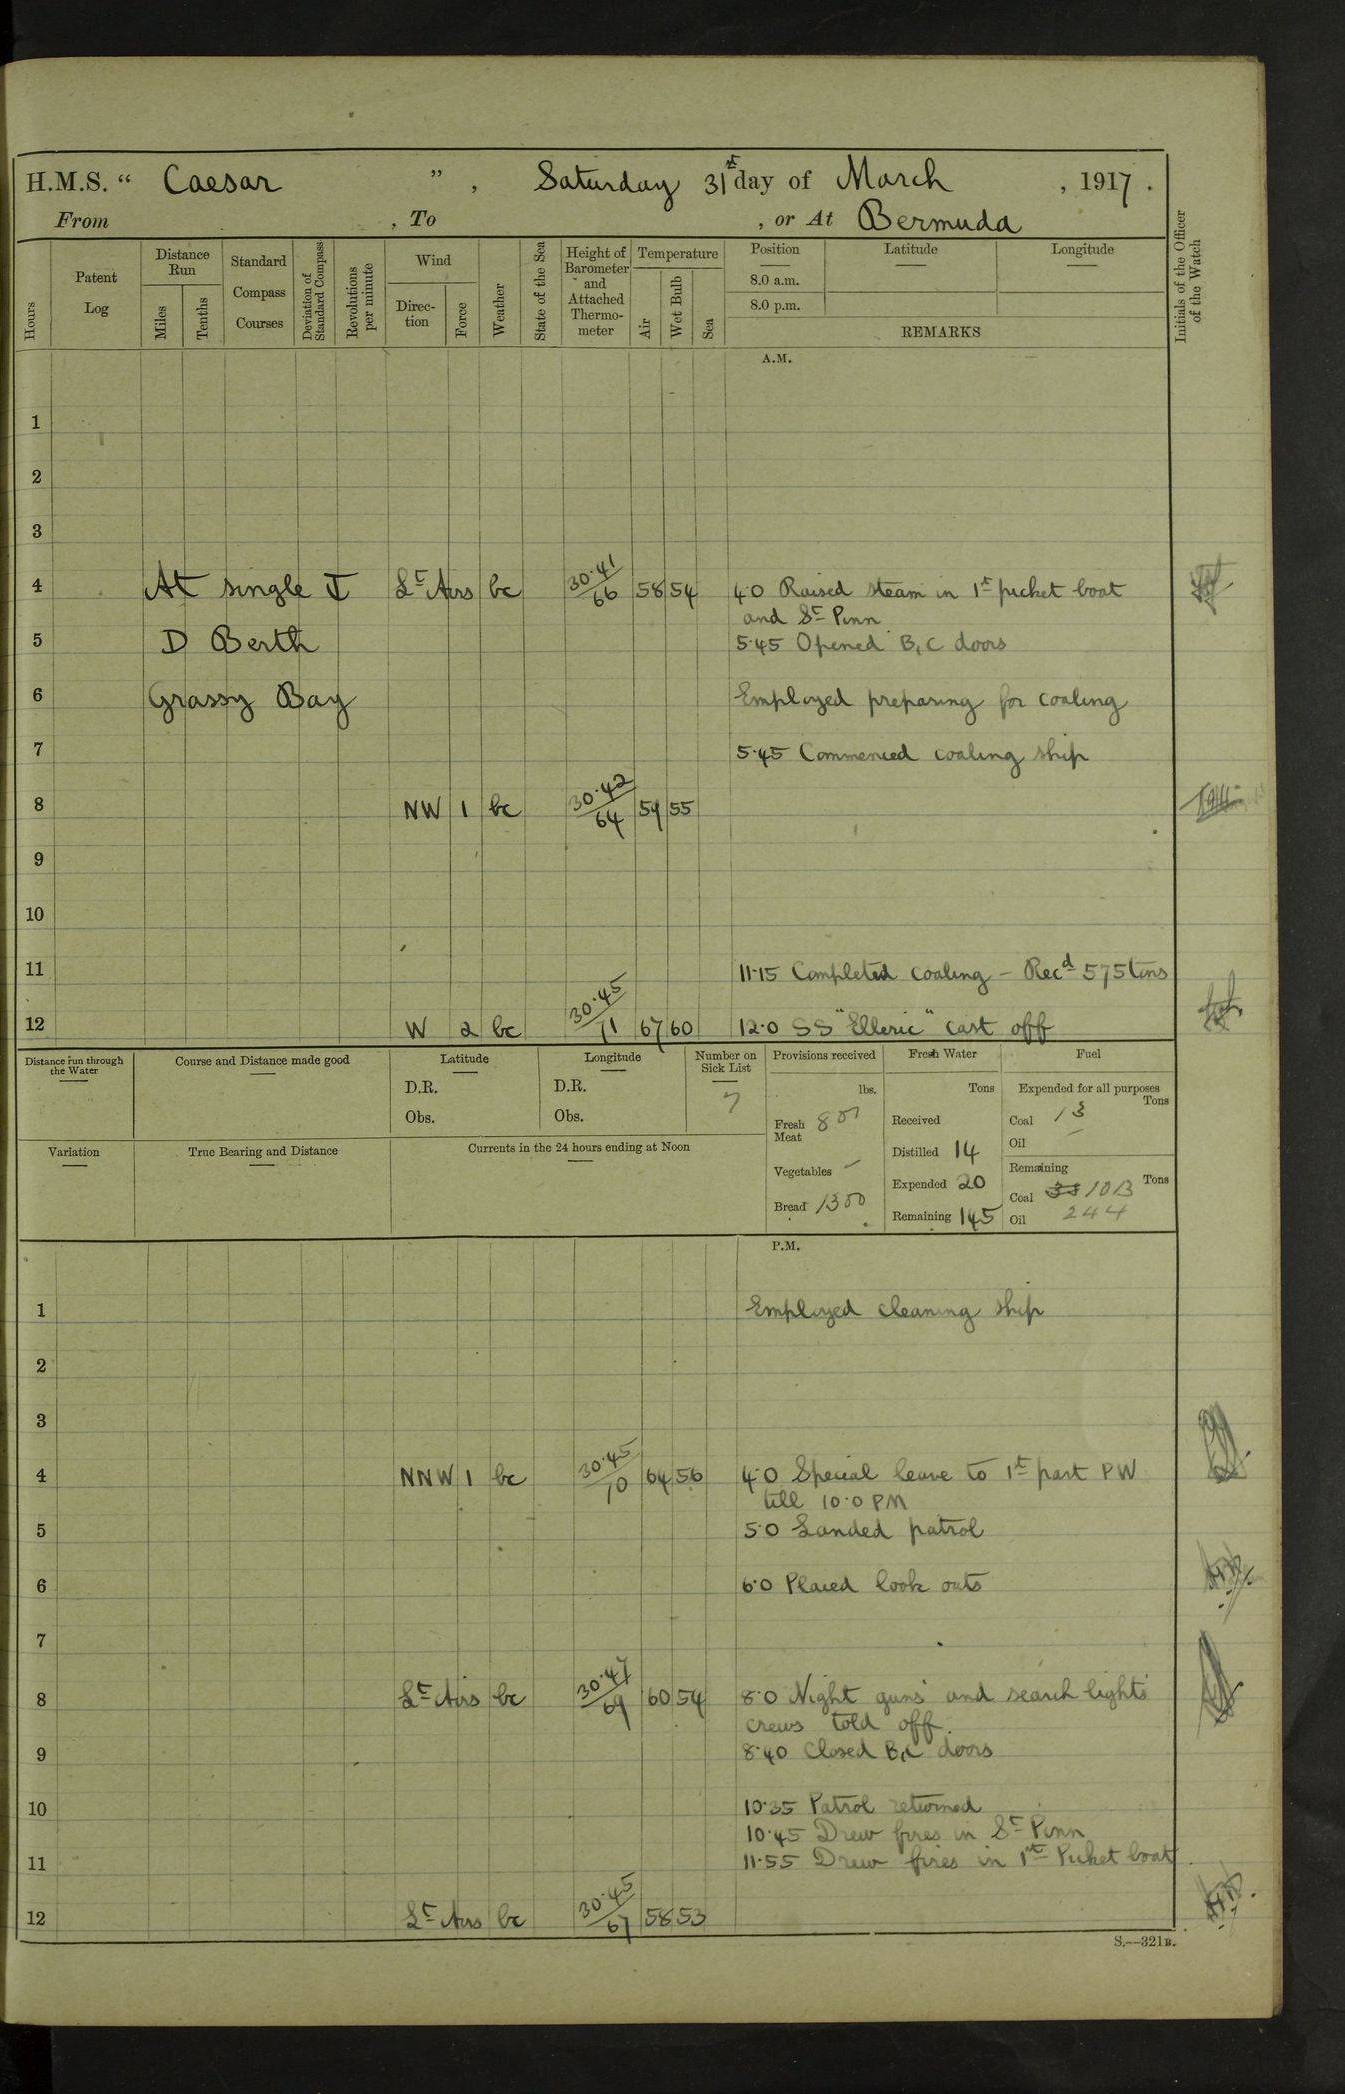 H.M.S. “ Caesar ” , Saturday 31st day of March , 1917 .
From , To , or At Bermuda
Hours
Patent Log
Distance Run
Miles
Tenths
Standard Compass Courses
Deviation of Standard Compass
Revolutions per minute
Wind
Direc-tion
Force
Weather
State of the Sea
Height of Barometer and Attached Thermo-meter
Temperature
Air
Wet Bulb
Sea
Position Latitude Longitude
8.0 a.m.
8.0 p.m.
REMARKS
Initials of the Officer of the Watch
A.M.
1
2
3
4 At single Lt Airs bc 30.41/66 58 54 4.0 Raised steam in 1st picket boat
and St Pinn
5 D Berth 5.45 Opened B, C doors
6 Grassy Bay Employed preparing for coaling
7 5.45 Commenced coaling ship
8 NW 1 bc 30.42/64 59 55
9
10
11 11.15 Completed coaling – Recd 575 tons
12 W 2 bc 30.45/71 67 60 12.0 SS "Elleric" cast off
Distance run through the Water
Course and Distance made good
Latitude
D.R.
Obs.
Longitude
D.R.
Obs.
Number on Sick List
7
Provisions received
lbs.
Fresh Meat 800
Vegetables –
Bread 1300
Fresh Water
Tons
Received
Distilled 14
Expended 20
Remaining 145
Fuel
Expended for all purposes
Tons
Coal 13
Oil –
Remaining
Tons
Coal 1013
Oil 244
Variation
True Bearing and Distance
Currents in the 24 hours ending at Noon
P.M.
1 Employed cleaning ship
2
3
4 NNW 1 bc 30.45/70 64 56 4.0 Special leave to 1st part PW
till 10.0 PM
5 5.0 Landed patrol
6 6.0 Placed look outs
7
8 Lt Airs bc 30.47/69 60 54 8.0 Night guns' and search lights'
crews told off.
9 8.40 Closed B, C doors
10 10.35 Patrol returned
10.45 Drew fires in St Pinn
11 11.55 Drew fires in 1st Picket boat
12 Lt Airs bc 30.45/67 58 53
S.—321B.